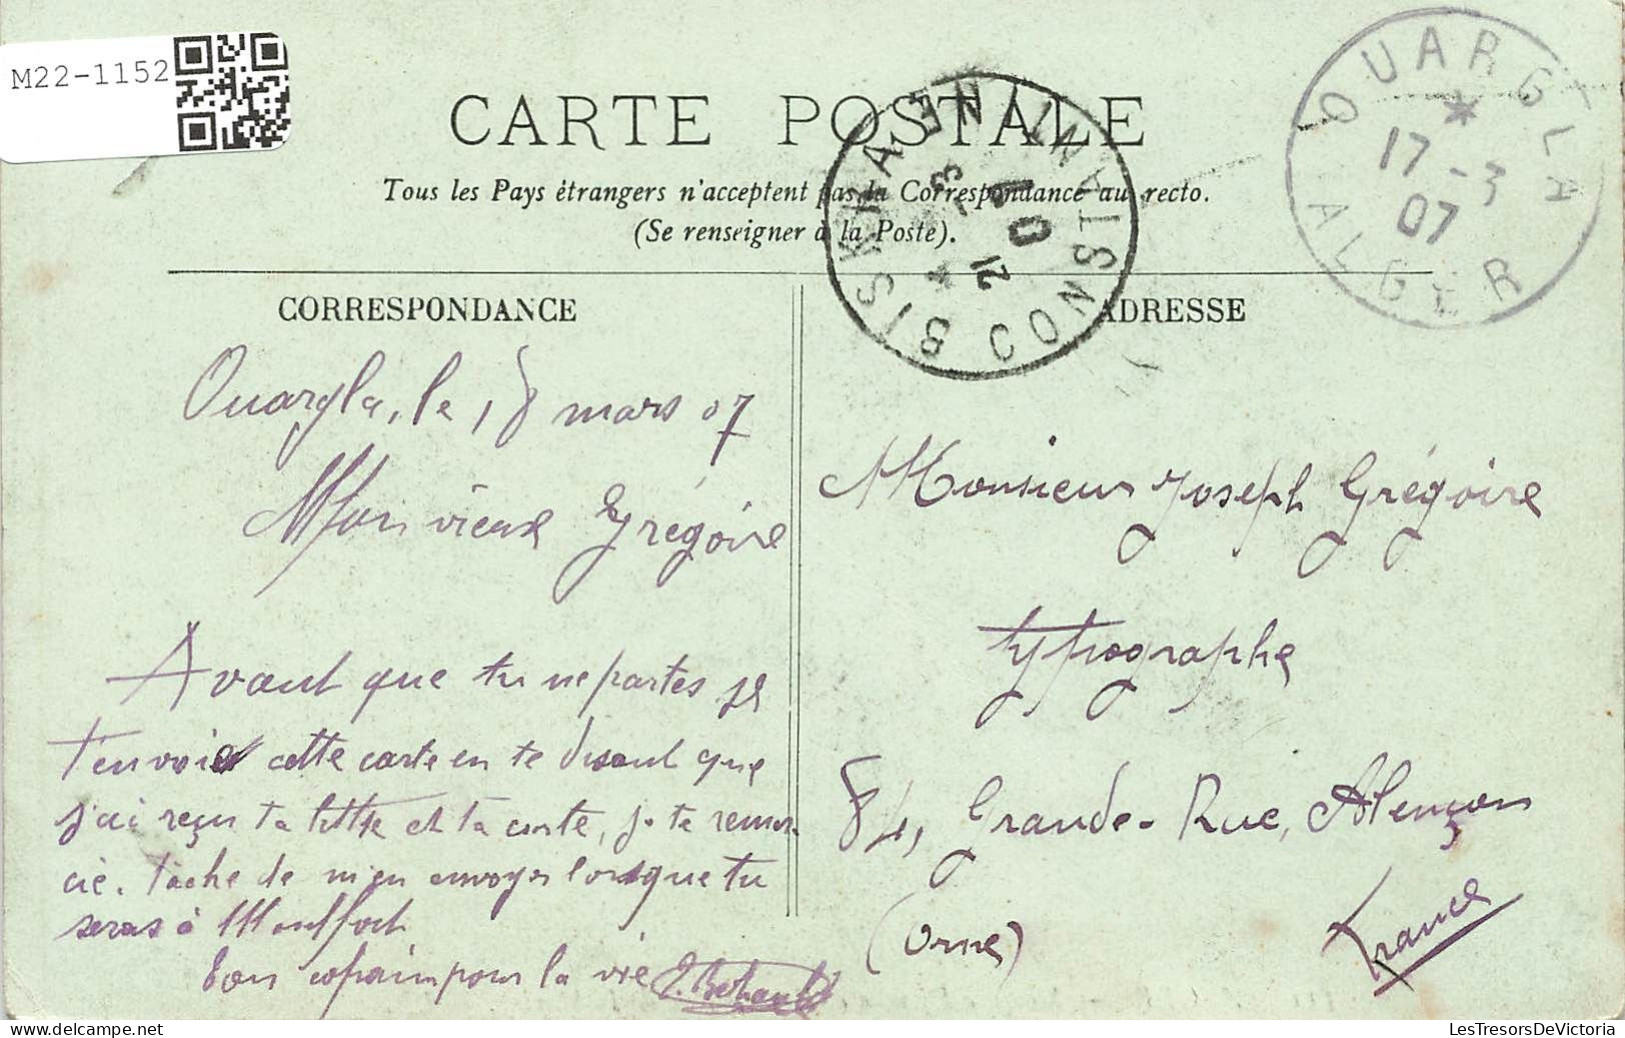 M22-1152
CARTE POSTALE
Tous les Pays étrangers n'acceptent pas la Correspondance au recto.
(Se renseigner à la Poste).
OUARGLA
17-3
07
ALGER
BISKRA
21 -3
07
CONSTANTINE
CORRESPONDANCE
Ouargla, le 18 mars 07
Mon vieux Grégoire
Avant que tu ne partes je
t'envoie cette carte en te disant que
j'ai reçu ta lettre et ta carte, je te remer-
cie. Tâche de m'en envoyer lorsque tu
seras à Montfort
ton copain pour la vie
ADRESSE
Monsieur Joseph Grégoire
typographe
84, Grande-Rue, Alençon
(Orne)
France
LesTresorsDeVictoria
www.delcampe.net